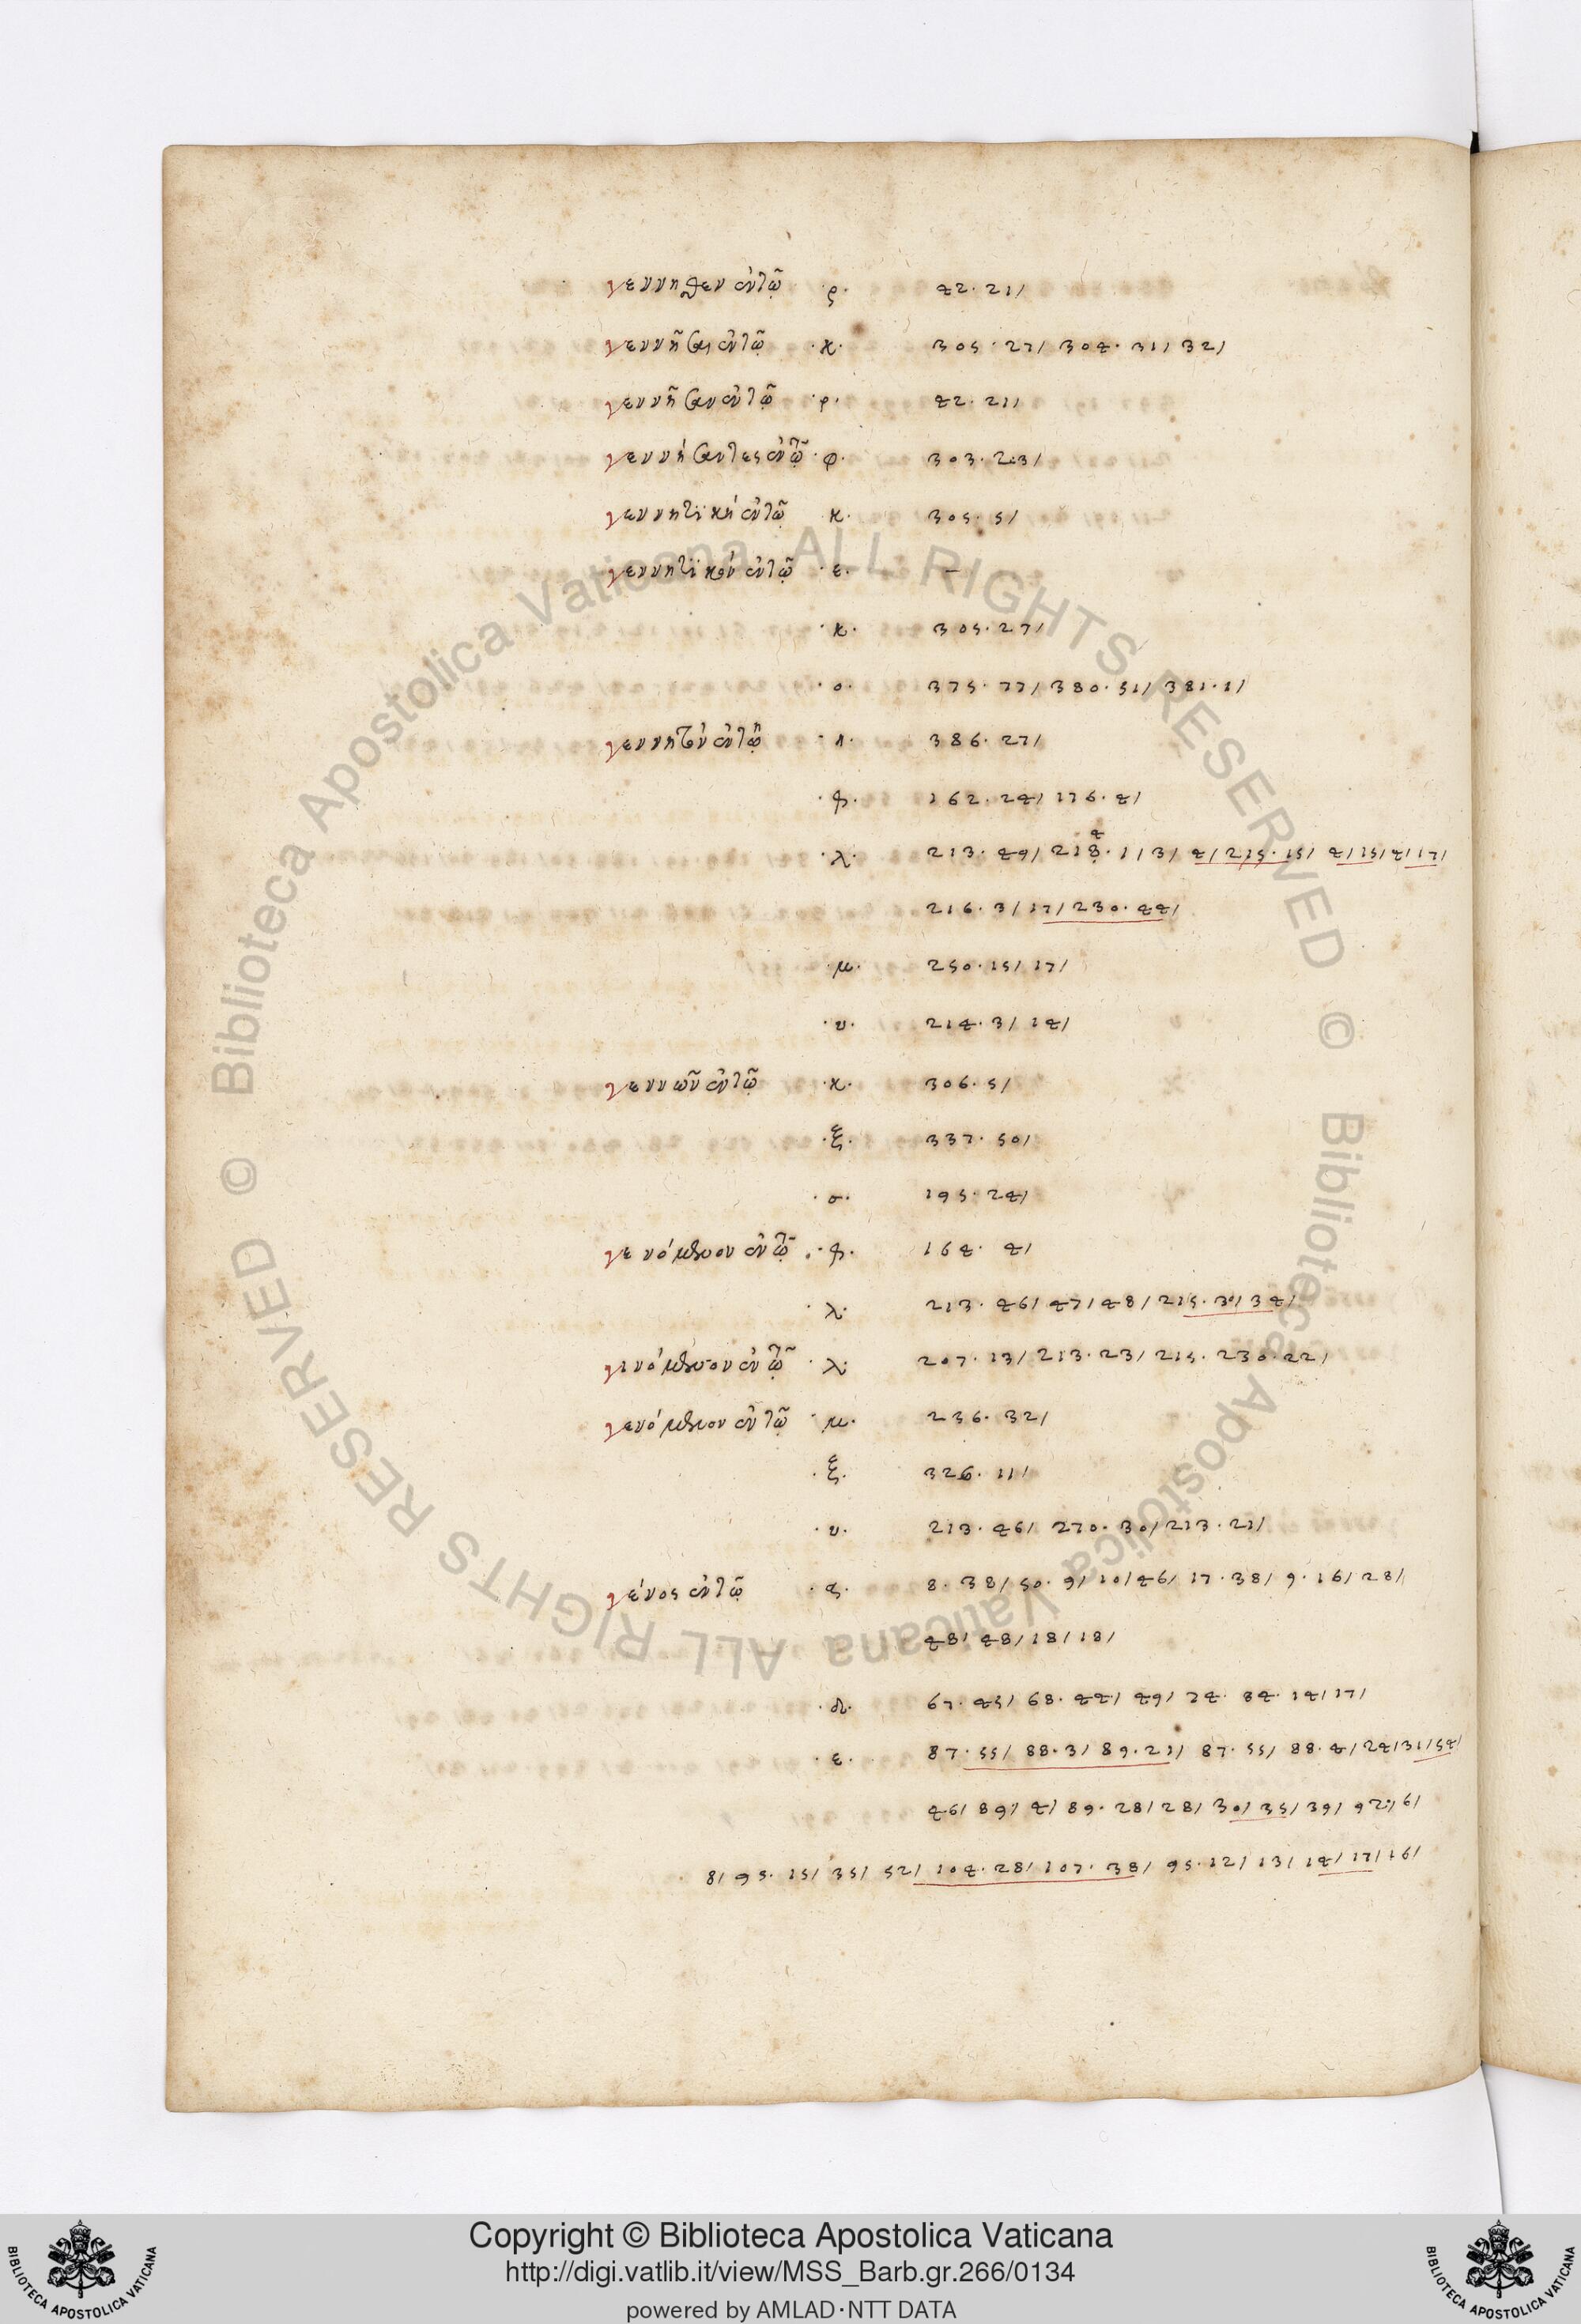 γεννηθεν ἐν τῷ ·ρ· 42. 21/
γεννῆσαι ἐν τῷ ·κ· 305. 27/ 304. 31/ 32/
γεννῆσαν ἐν τῷ ·ρ· 42. 21/
γεννήσαντες ἐν τῷ ·φ· 303. 23/
γεννητικὴ ἐν τῷ ·κ· 305. 5/
γεννητικὸν ἐν τῷ ·ε· –
·κ· 305. 27/
·ο· 375. 77/ 380. 51/ 381. 1/
γεννητὸν ἐν τῷ 386. 27/
162. 24/ 176. 4/
·λ· 213. 49/ 218. 1/3/ 4/ 215. 15/ 4/15/4/17/
216. 3/17/230. 44/
·μ· 250. 15/ 17/
·υ· 214. 3/ 14/
γεννῶν ἐν τῷ ·κ· 306. 5/
·ξ· 337. 50/
·σ· 195. 24/
γενόμενον ἐν τῷ 164. 4/
·λ· 213. 46/ 47/ 48/ 215. 30/ 34/
γινόμενον ἐν τῷ ·λ· 207. 13/ 213. 23/ 215. 230. 22/
γενόμενον ἐν τῷ ·μ· 236. 32/
·ξ· 326. 11/
·υ· 213. 46/ 270. 30/ 213. 21/
γένος ἐν τῷ 8. 38/ 50. 9/ 10/46/ 17. 38/ 9. 16/ 28/
48/ 48/ 18/ 18/
·δ· 67. 45/ 68. 44/ 49/ 74. 84. 14/ 17/
·ε· 87. 55/ 88. 3/ 89. 21/ 87. 55/ 88. 4/ 24/31/54/
46/ 89/ 4/ 89. 28/ 28/ 30/ 35/ 39/ 92. 6/
8/ 95. 15/ 35/ 52/ 104. 28/ 107. 38/ 95. 12/ 13/ 14/ 17/ 16/
© Biblioteca Apostolica Vaticana ALL RIGHTS RESERVED © Biblioteca Apostolica Vaticana ALL RIGHTS RESERVED
Copyright © Biblioteca Apostolica Vaticana
http://digi.vatlib.it/view/MSS_Barb.gr.266/0134
powered by AMLAD·NTT DATA
BIBLIOTECA APOSTOLICA VATICANA
BIBLIOTECA APOSTOLICA VATICANA